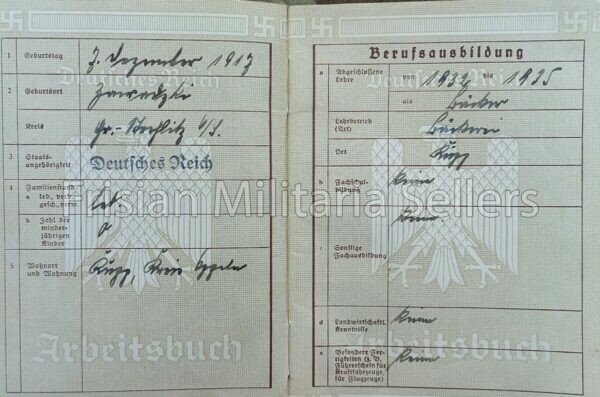 1 Geburtstag 7. Dezember 1917
2 Geburtsort Zawadzki
Kreis Gr.-Strehlitz O/S.
3 Staats-
angehörigkeit Deutsches Reich
4 Familienstand
a led., verh.,
gesch., verw. led.
b Zahl der
minder-
jährigen
Kinder 0
5 Wohnort
und Wohnung Kupp, Kreis Oppeln
Deutsches Reich
Arbeitsbuch
Berufsausbildung
a Abgeschlossene
Lehre von 1932 bis 1935
als Bäcker
Lehrbetrieb
(Art) Bäckerei
Ort Kupp
b Fachschul-
bildung keine
c Sonstige
Fachausbildung keine.
d Landwirtschaftl.
Kenntnisse keine
e Besondere Fer-
tigkeiten (z. B.
Führerschein für
Kraftfahrzeuge,
für Flugzeuge) keine
Deutsches Reich
Arbeitsbuch
Frisian Militaria Sellers